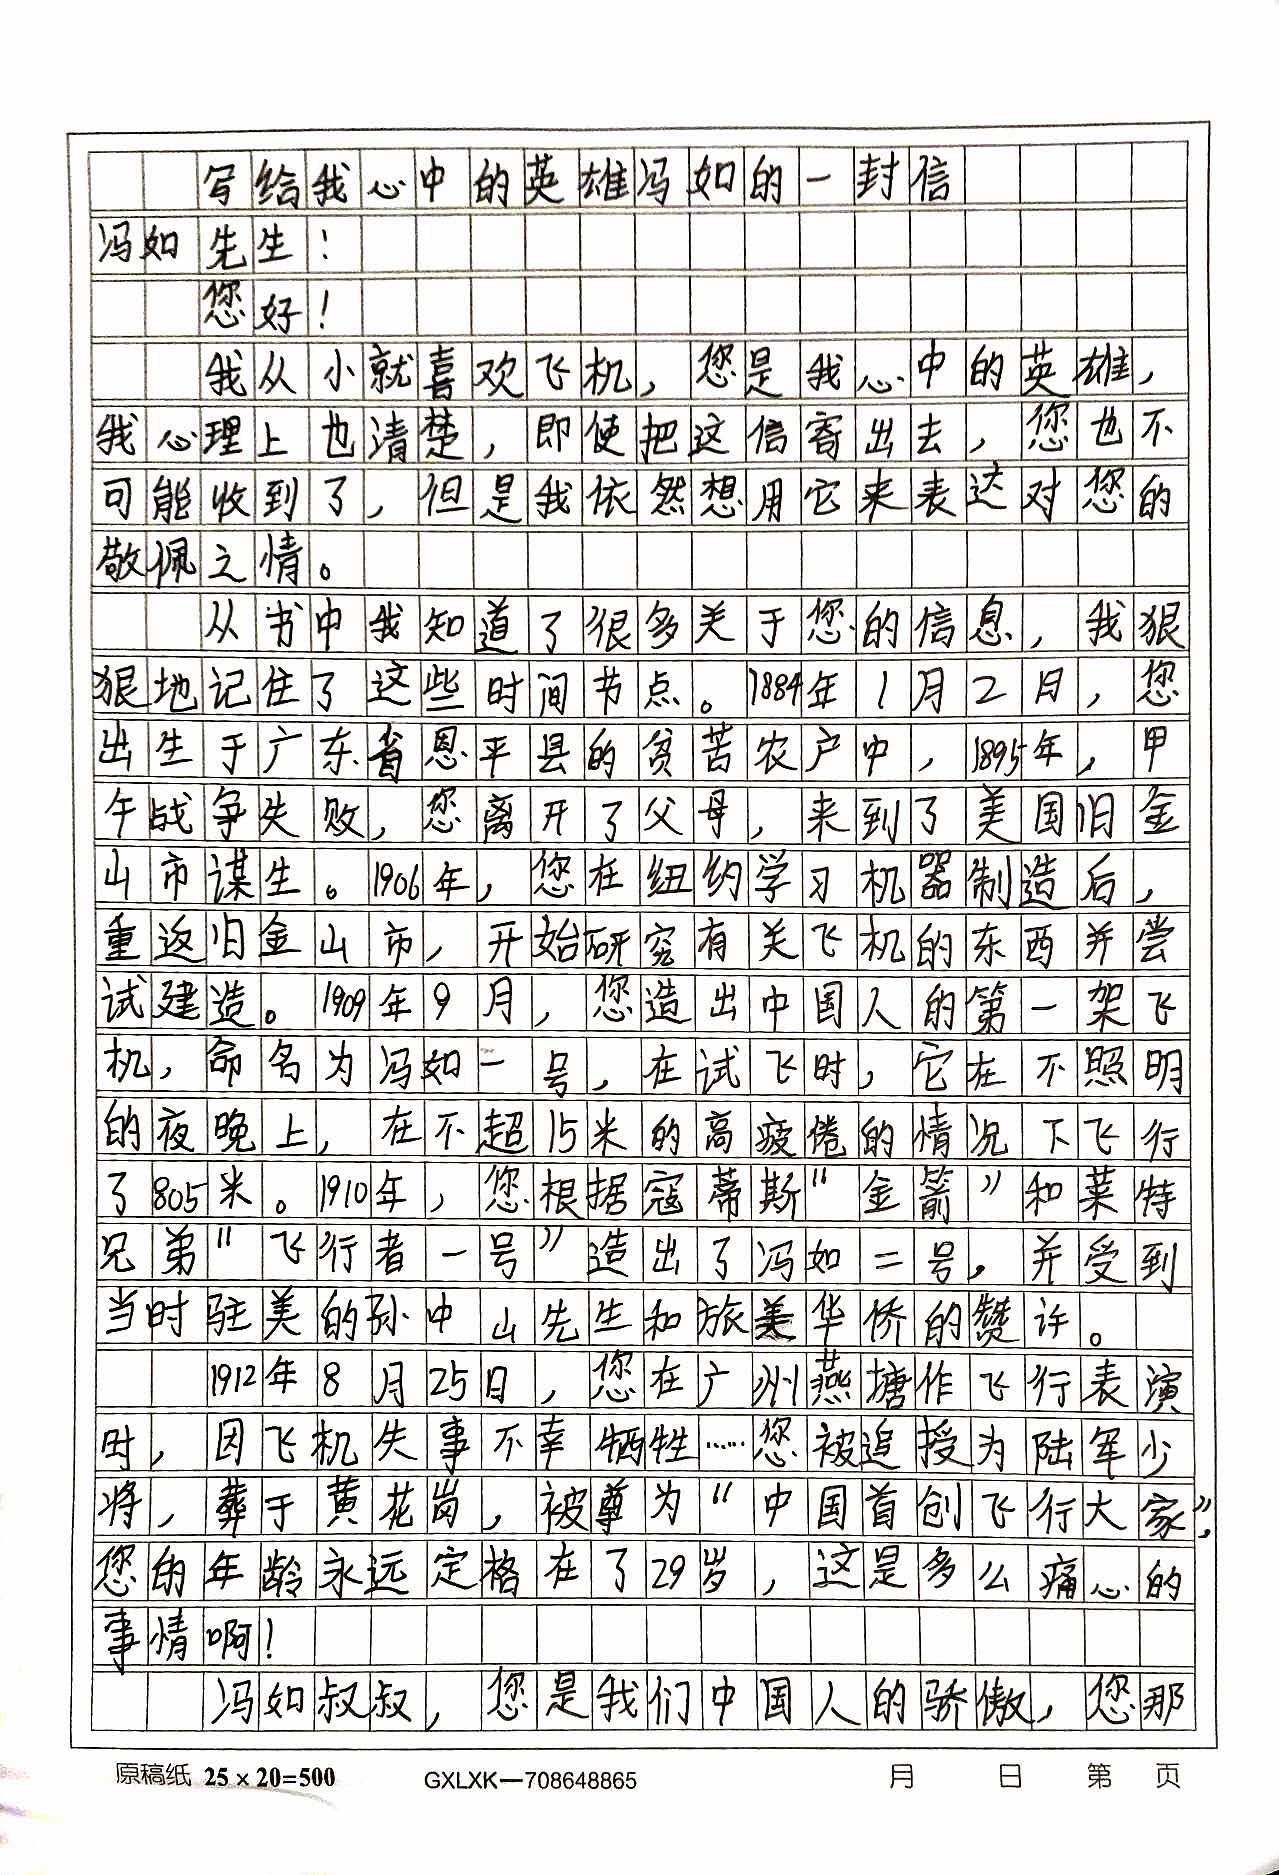 写给我心中的英雄冯如的一封信
冯如先生！
您好！
我从小就喜欢飞机，您是我心中的英雄，
我心理上也清楚，即使把这信寄出去，您也不
可能收到了，但是我依然想用它来表达对您的
敬佩之情。
从书中我知道了很多关于您的信息，我狠
狠地记住了这些时间节点。1884年1月2日，您
出生于广东省恩平县的贫苦农户中，1895年，甲
午战争失败，您离开了父母，来到了美国旧金
山市谋生。1906年，您在纽约学习机器制造后，
重返旧金山市，开始研究有关飞机的东西并尝
试建造。1909年9月，您造出中国人的第一架飞
机，命名为冯如一号，在试飞时，它在不照明
的夜晚上，在不超15米的高疲倦的情况下飞行
了805米。1910年，您根据寇蒂斯“金箭”和莱特
兄弟“飞行者一号”造出了冯如二号，并受到
当时驻美的孙中山先生和旅美华侨的赞许。
1912年8月25日，您在广州燕塘作飞行表演
时，因飞机失事不幸牺牲……您被追授为陆军少
将，葬于黄花岗，被尊为“中国首创飞行大家”，
您的年龄永远定格在了29岁，这是多么痛心的
事情啊！
冯如叔叔，您是我们中国人的骄傲，您那
原稿纸 25×20=500 GXLXK—708648865 月 日 第 页